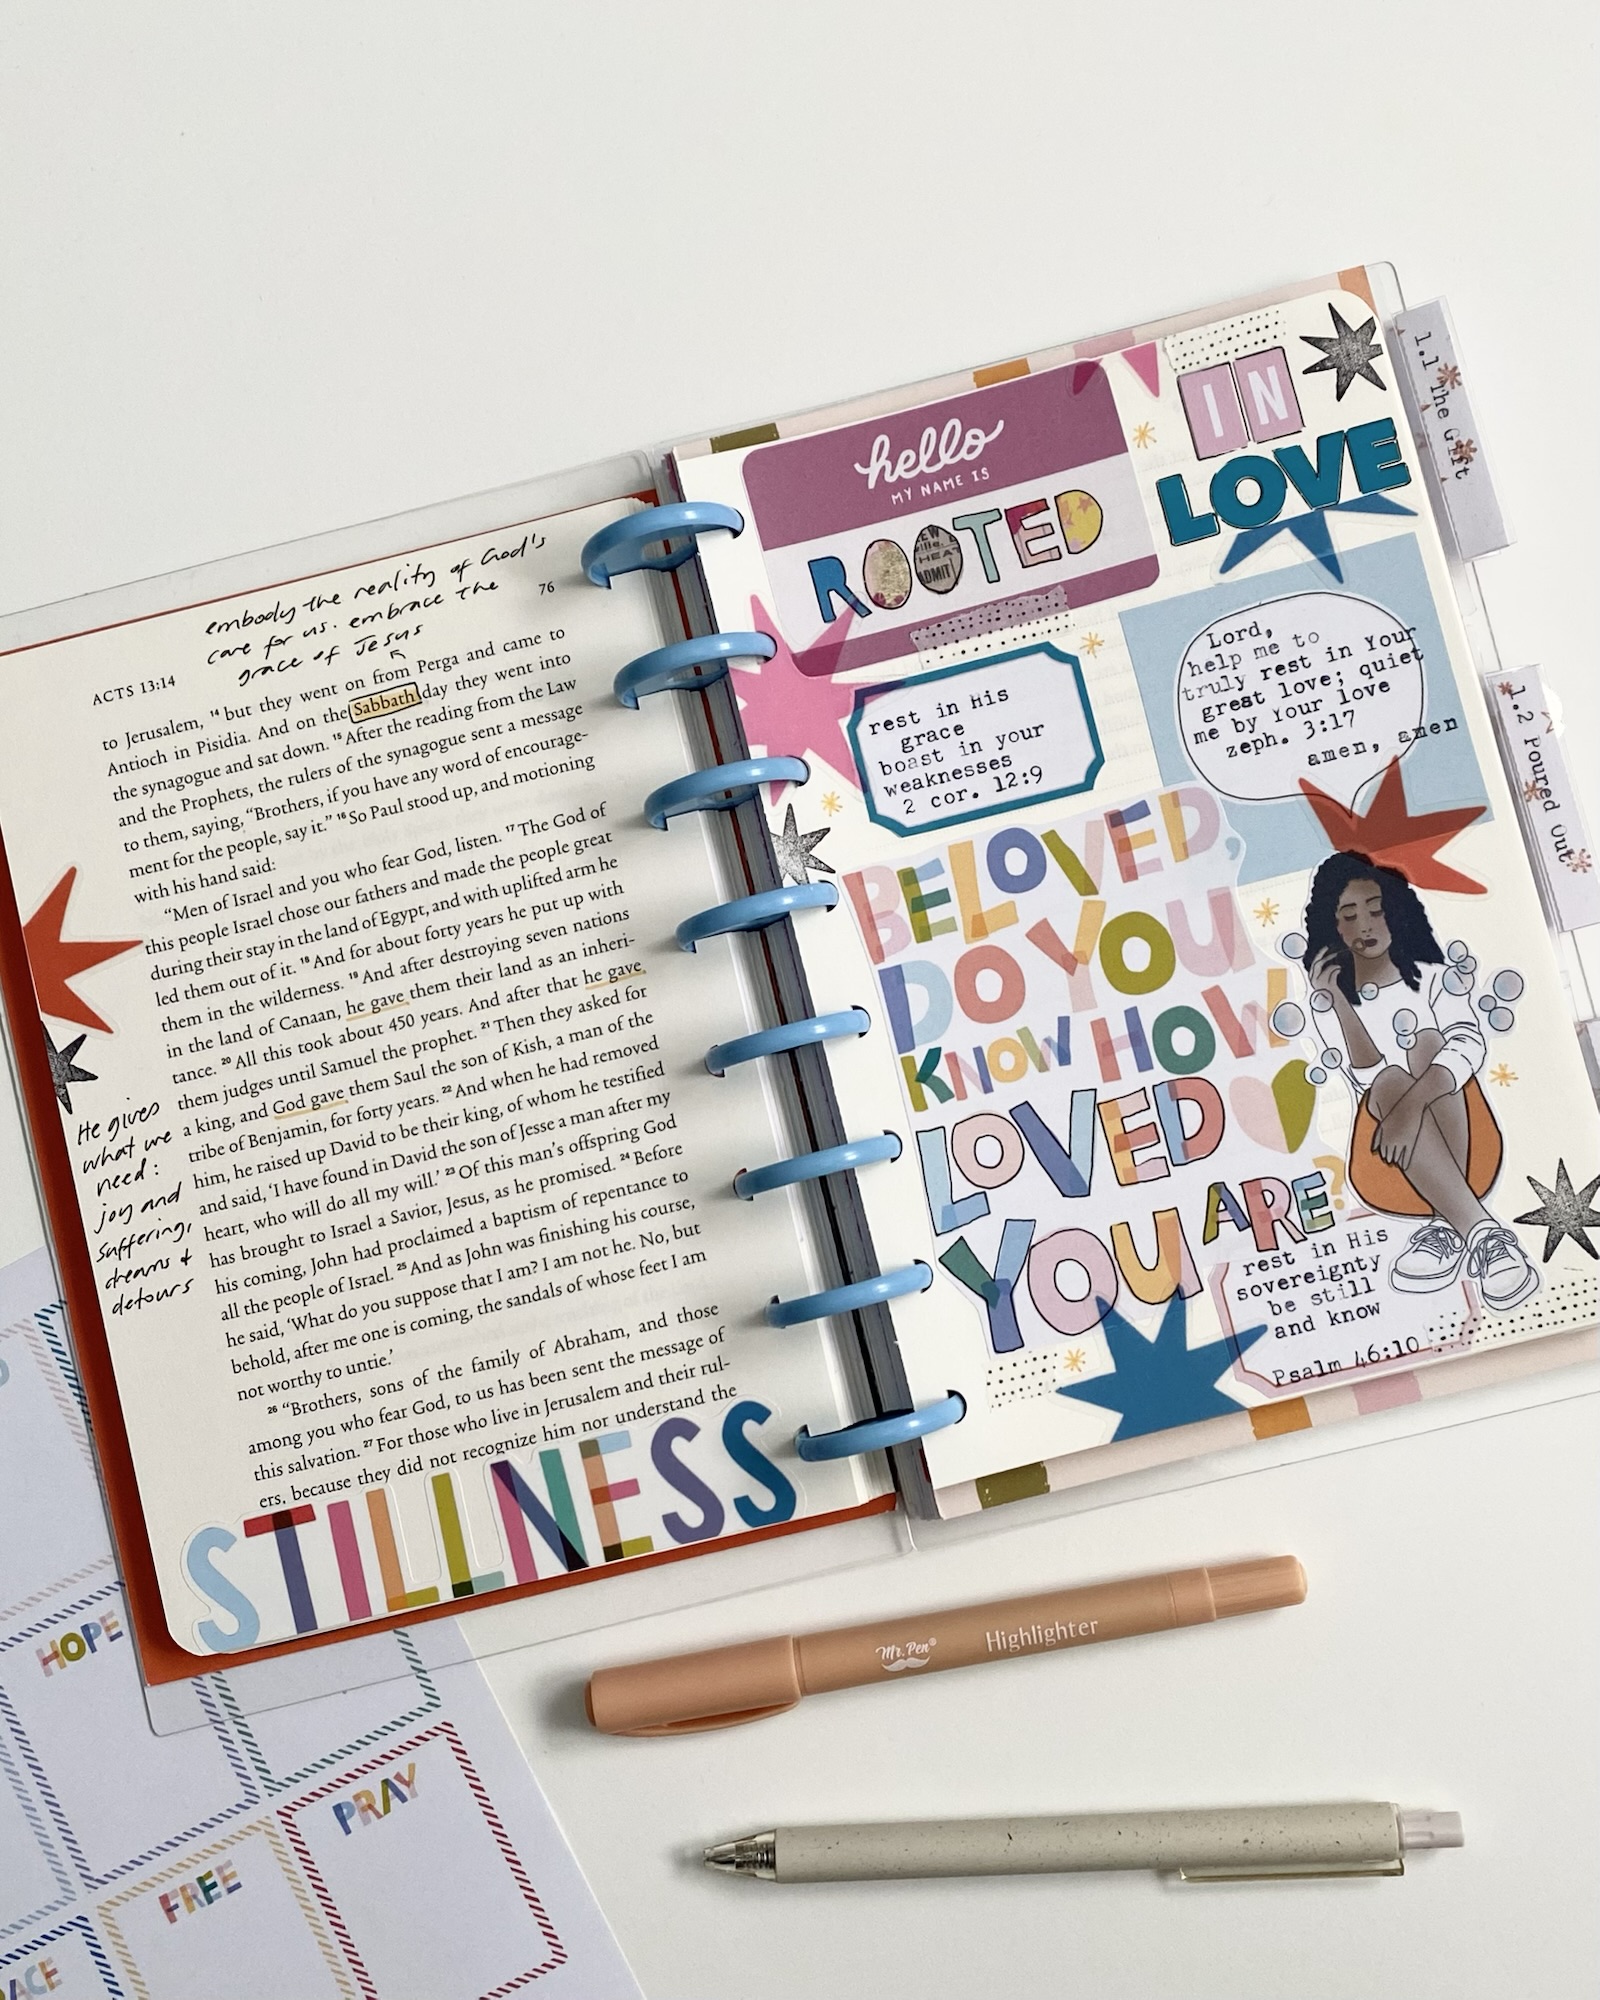 embody the reality of God's
care for us. embrace the
grace of Jesus
76
ACTS 13:14
to Jerusalem, ¹⁴ but they went on from Perga and came to
Antioch in Pisidia. And on the Sabbath day they went into
the synagogue and sat down. ¹⁵ After the reading from the Law
and the Prophets, the rulers of the synagogue sent a message
to them, saying, “Brothers, if you have any word of encourage-
ment for the people, say it.” ¹⁶ So Paul stood up, and motioning
with his hand said:
“Men of Israel and you who fear God, listen. ¹⁷ The God of
this people Israel chose our fathers and made the people great
during their stay in the land of Egypt, and with uplifted arm he
led them out of it. ¹⁸ And for about forty years he put up with
them in the wilderness. ¹⁹ And after destroying seven nations
in the land of Canaan, he gave them their land as an inheri-
tance. ²⁰ All this took about 450 years. And after that he gave
them judges until Samuel the prophet. ²¹ Then they asked for
a king, and God gave them Saul the son of Kish, a man of the
tribe of Benjamin, for forty years. ²² And when he had removed
him, he raised up David to be their king, of whom he testified
and said, ‘I have found in David the son of Jesse a man after my
heart, who will do all my will.’ ²³ Of this man’s offspring God
has brought to Israel a Savior, Jesus, as he promised. ²⁴ Before
his coming, John had proclaimed a baptism of repentance to
all the people of Israel. ²⁵ And as John was finishing his course,
he said, ‘What do you suppose that I am? I am not he. No, but
behold, after me one is coming, the sandals of whose feet I am
not worthy to untie.’
²⁶ “Brothers, sons of the family of Abraham, and those
among you who fear God, to us has been sent the message of
this salvation. ²⁷ For those who live in Jerusalem and their rul-
ers, because they did not recognize him nor understand the
He gives
what we
need:
joy and
suffering,
dreams +
detours
STILLNESS
hello
MY NAME IS
ROOTED
IN
LOVE
rest in His
grace
boast in your
weaknesses
2 cor. 12:9
Lord,
help me to
truly rest in Your
great love; quiet
me by Your love
zeph. 3:17
amen, amen
BELOVED,
DO YOU
KNOW HOW
LOVED
YOU ARE?
rest in His
sovereignty
be still
and know
Psalm 46:10
1.1 The Gift
1.2 Poured Out
Mr. Pen® Highlighter
HOPE
PRAY
FREE